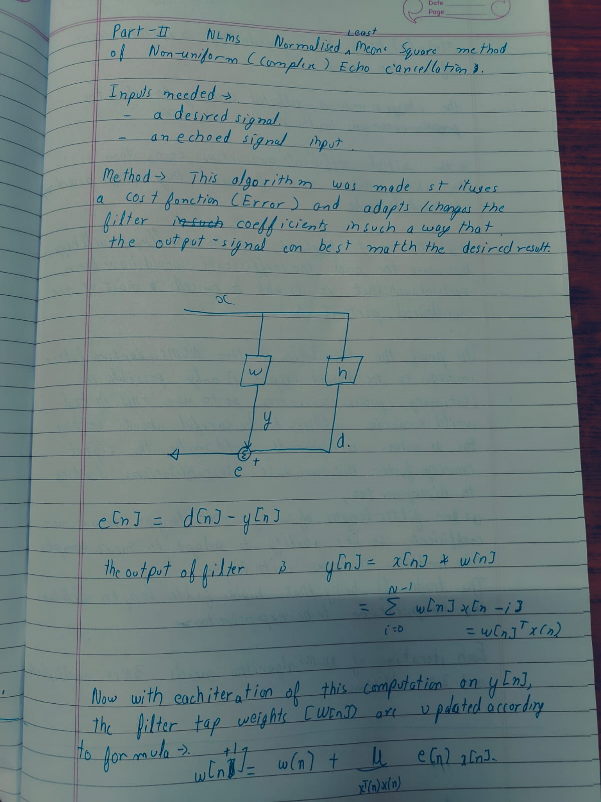 Date
Page
Part-II NLMS Normalised Least Means Square method
of Non-uniform (Complex) Echo Cancellation.
Inputs needed →
- a desired signal.
- an echoed signal input.
Method → This algorithm was made st ituses
a cost function (Error) and adapts/changes the
filter in such coefficients in such a way that
the output-signal can best match the desired result.
x
w h
y
d.
e +
e[n] = d[n] - y[n]
the output of filter is y[n] = x[n] * w[n]
N-1
= Σ w[n] x[n-i]
i=0 = w[n]ᵀx(n)
Now with each iteration of this computation on y[n],
the filter tap weights [w[n]] are updated according
to formula →
w[n+1] = w(n) + μ e[n] x[n].
xᵀ(n)x(n)